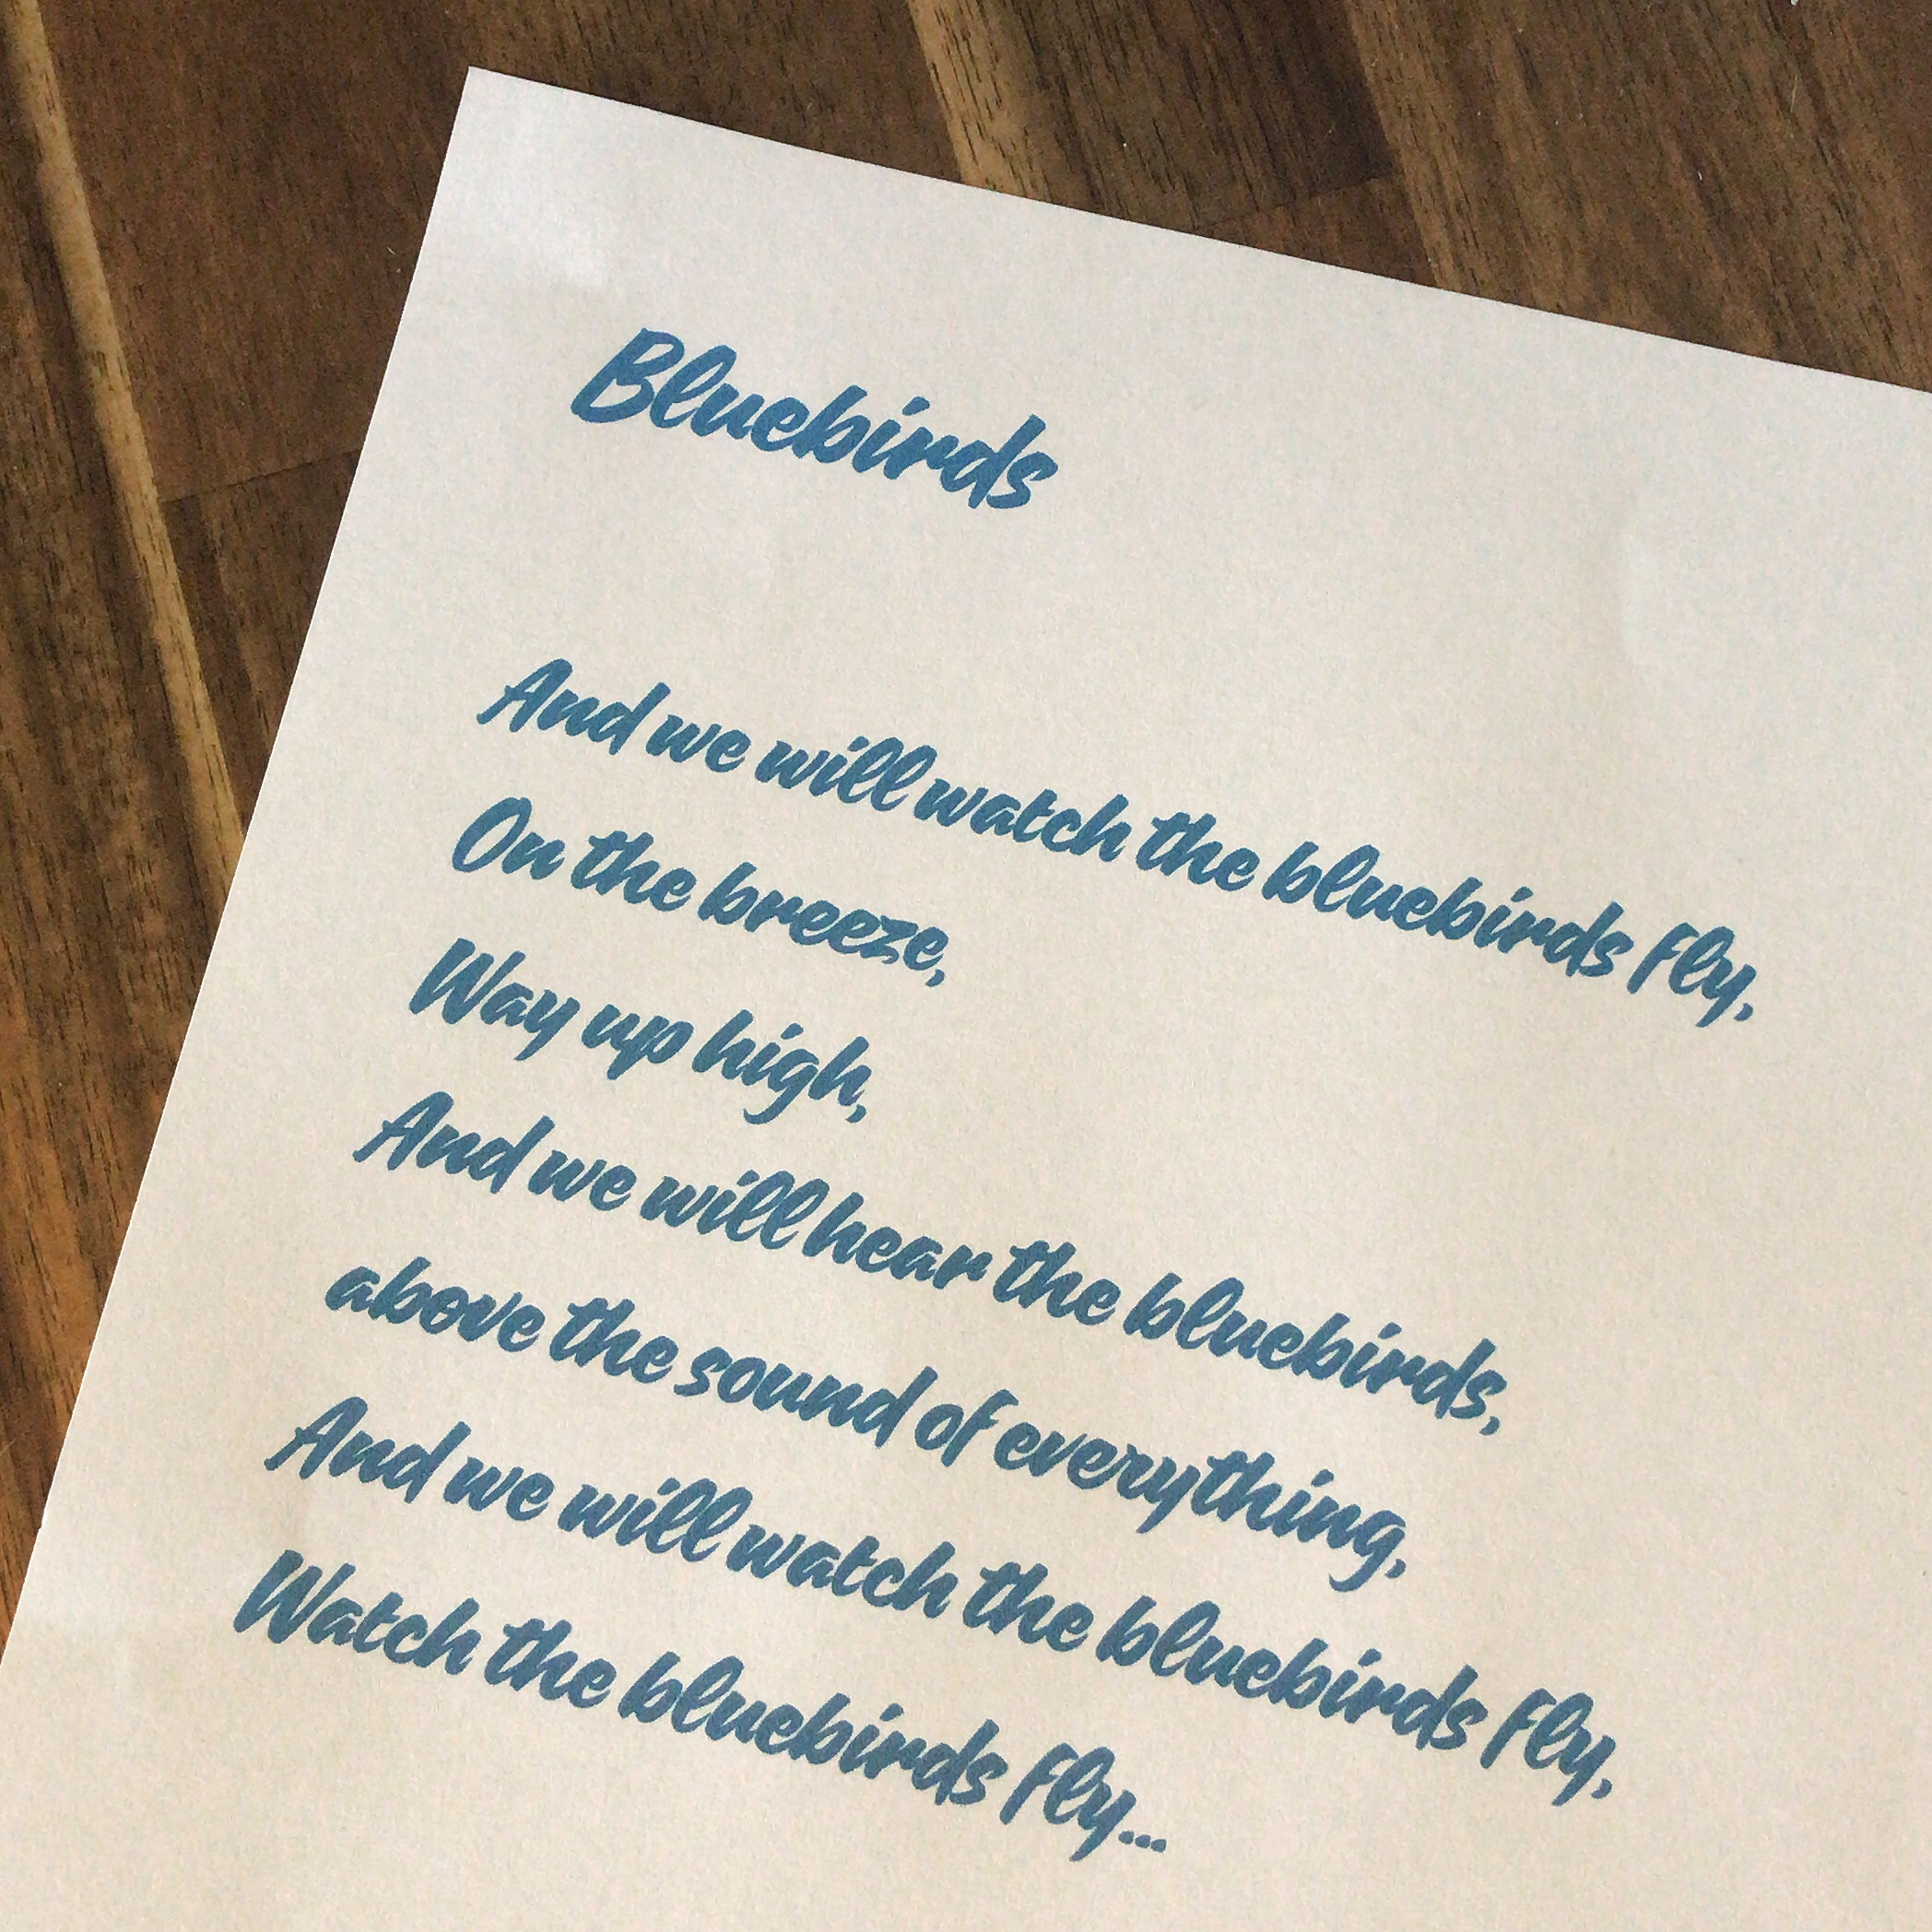 Bluebirds
And we will watch the bluebirds fly,
On the breeze,
Way up high,
And we will hear the bluebirds,
above the sound of everything,
And we will watch the bluebirds fly,
Watch the bluebirds fly...